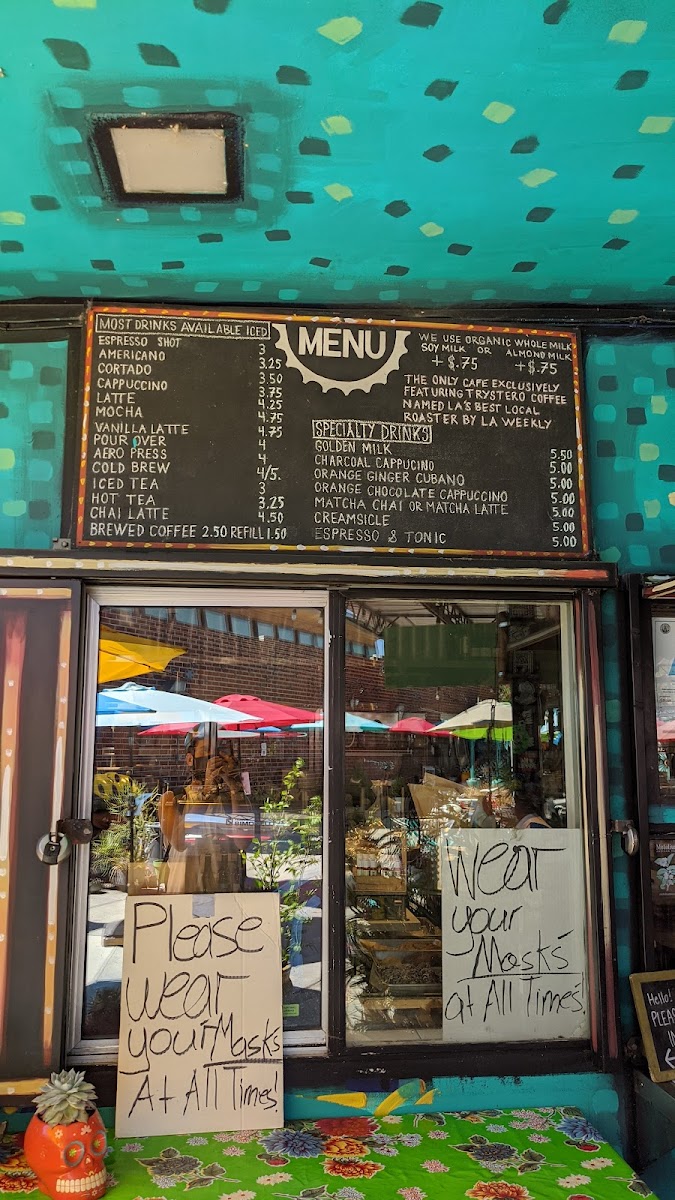 MOST DRINKS AVAILABLE ICED
ESPRESSO SHOT 3
AMERICANO 3.25
CORTADO 3.50
CAPPUCCINO 3.75
LATTE 4.25
MOCHA 4.75
VANILLA LATTE 4.75
POUR OVER 4
AERO PRESS 4
COLD BREW 4/5.
ICED TEA 3
HOT TEA 3.25
CHAI LATTE 4.50
BREWED COFFEE 2.50 REFILL 1.50
MENU
WE USE ORGANIC WHOLE MILK
SOY MILK OR ALMOND MILK
+$.75 +$.75
THE ONLY CAFE EXCLUSIVELY
FEATURING TRYSTERO COFFEE
NAMED LA'S BEST LOCAL
ROASTER BY LA WEEKLY
SPECIALTY DRINKS
GOLDEN MILK 5.50
CHARCOAL CAPPUCINO 5.00
ORANGE GINGER CUBANO 5.00
ORANGE CHOCOLATE CAPPUCCINO 5.00
MATCHA CHAI OR MATCHA LATTE 5.00
CREAMSICLE 5.00
ESPRESSO & TONIC 5.00
Please
wear
your Masks
At All Times!
Wear
your
Masks
at All Times!
Hello!